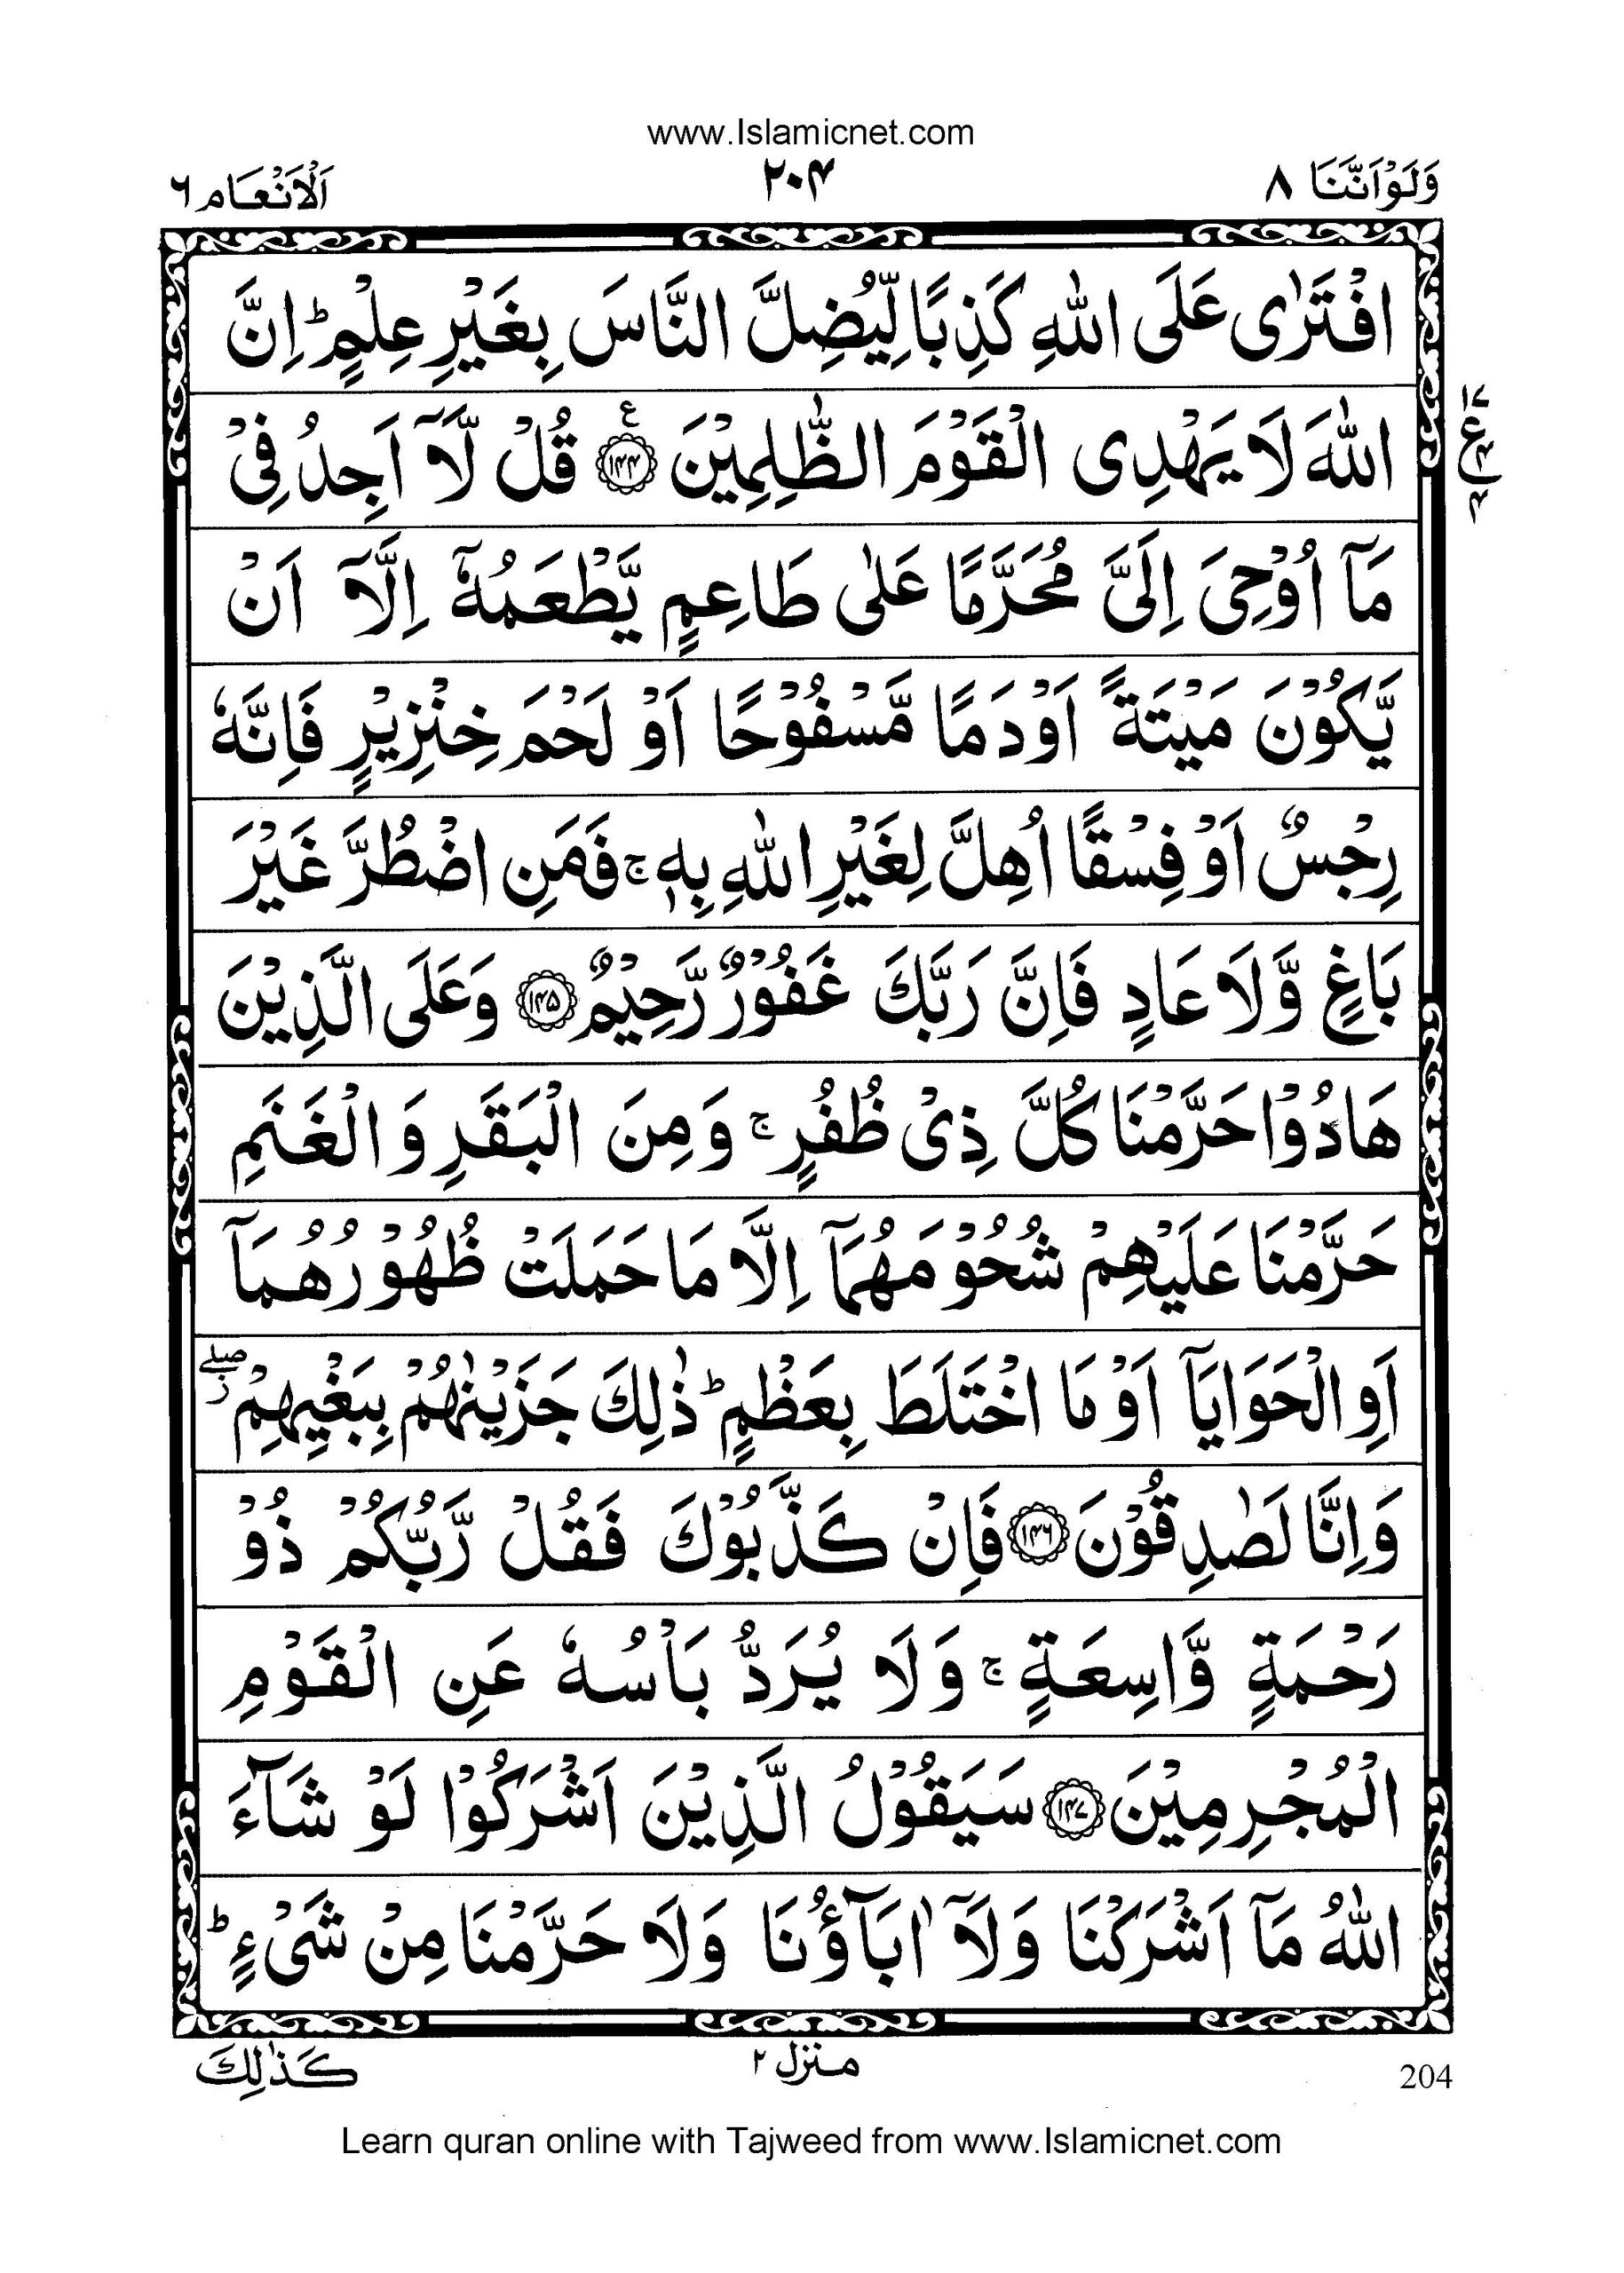 www.Islamicnet.com
وَلَوْاَنَّنَا ۸ ۲۰۴ اَلْاَنْعَام ۶
افْتَرٰى عَلَى اللّٰهِ كَذِبًا لِّيُضِلَّ النَّاسَ بِغَيْرِ عِلْمٍ ؕ اِنَّ
اللّٰهَ لَا يَهْدِى الْقَوْمَ الظّٰلِمِيْنَ ﴿۱۴۴﴾ ع قُلْ لَّاۤ اَجِدُ فِىْ
مَاۤ اُوْحِىَ اِلَىَّ مُحَرَّمًا عَلٰى طَاعِمٍ يَّطْعَمُهٗۤ اِلَّاۤ اَنْ
يَّكُوْنَ مَيْتَةً اَوْ دَمًا مَّسْفُوْحًا اَوْ لَحْمَ خِنْزِيْرٍ فَاِنَّهٗ
رِجْسٌ اَوْ فِسْقًا اُهِلَّ لِغَيْرِ اللّٰهِ بِهٖ ۚ فَمَنِ اضْطُرَّ غَيْرَ
بَاغٍ وَّلَا عَادٍ فَاِنَّ رَبَّكَ غَفُوْرٌ رَّحِيْمٌ ﴿۱۴۵﴾ وَعَلَى الَّذِيْنَ
هَادُوْا حَرَّمْنَا كُلَّ ذِىْ ظُفُرٍ ۚ وَمِنَ الْبَقَرِ وَالْغَنَمِ
حَرَّمْنَا عَلَيْهِمْ شُحُوْمَهُمَاۤ اِلَّا مَا حَمَلَتْ ظُهُوْرُهُمَاۤ
اَوِ الْحَوَايَاۤ اَوْ مَا اخْتَلَطَ بِعَظْمٍ ؕ ذٰلِكَ جَزَيْنٰهُمْ بِبَغْيِهِمْ ۖز
وَاِنَّا لَصٰدِقُوْنَ ﴿۱۴۶﴾ فَاِنْ كَذَّبُوْكَ فَقُلْ رَّبُّكُمْ ذُوْ
رَحْمَةٍ وَّاسِعَةٍ ۚ وَلَا يُرَدُّ بَاْسُهٗ عَنِ الْقَوْمِ
الْمُجْرِمِيْنَ ﴿۱۴۷﴾ سَيَقُوْلُ الَّذِيْنَ اَشْرَكُوْا لَوْ شَآءَ
اللّٰهُ مَاۤ اَشْرَكْنَا وَلَاۤ اٰبَآؤُنَا وَلَا حَرَّمْنَا مِنْ شَىْءٍ ؕ
204 منزل ۲ كَذٰلِكَ
Learn quran online with Tajweed from www.Islamicnet.com